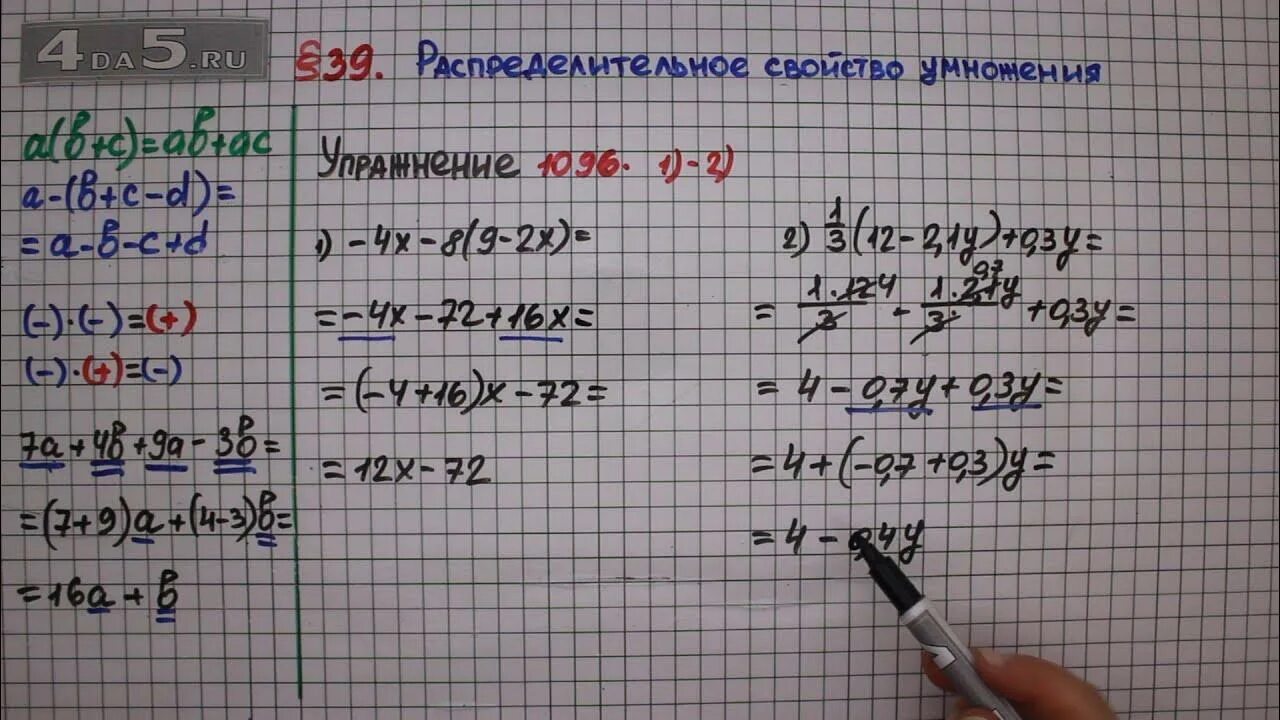 4DA5.RU
§39. Распределительное свойство умножения
a(b+c)=ab+ac
a-(b+c-d)=
=a-b-c+d
(-)·(-)=(+)
(-)·(+)=(-)
7a+4b+9a-3b=
=(7+9)a+(4-3)b=
=16a+b
Упражнение 1096. 1)-2)
1) -4x-8(9-2x)=
=-4x-72+16x=
=(-4+16)x-72=
=12x-72
2) 1/3(12-2,1y)+0,3y=
= 1·12 4/3 - 1·2,1y 0,7/3 +0,3y=
= 4-0,7y+0,3y=
=4+(-0,7+0,3)y=
=4-0,4y